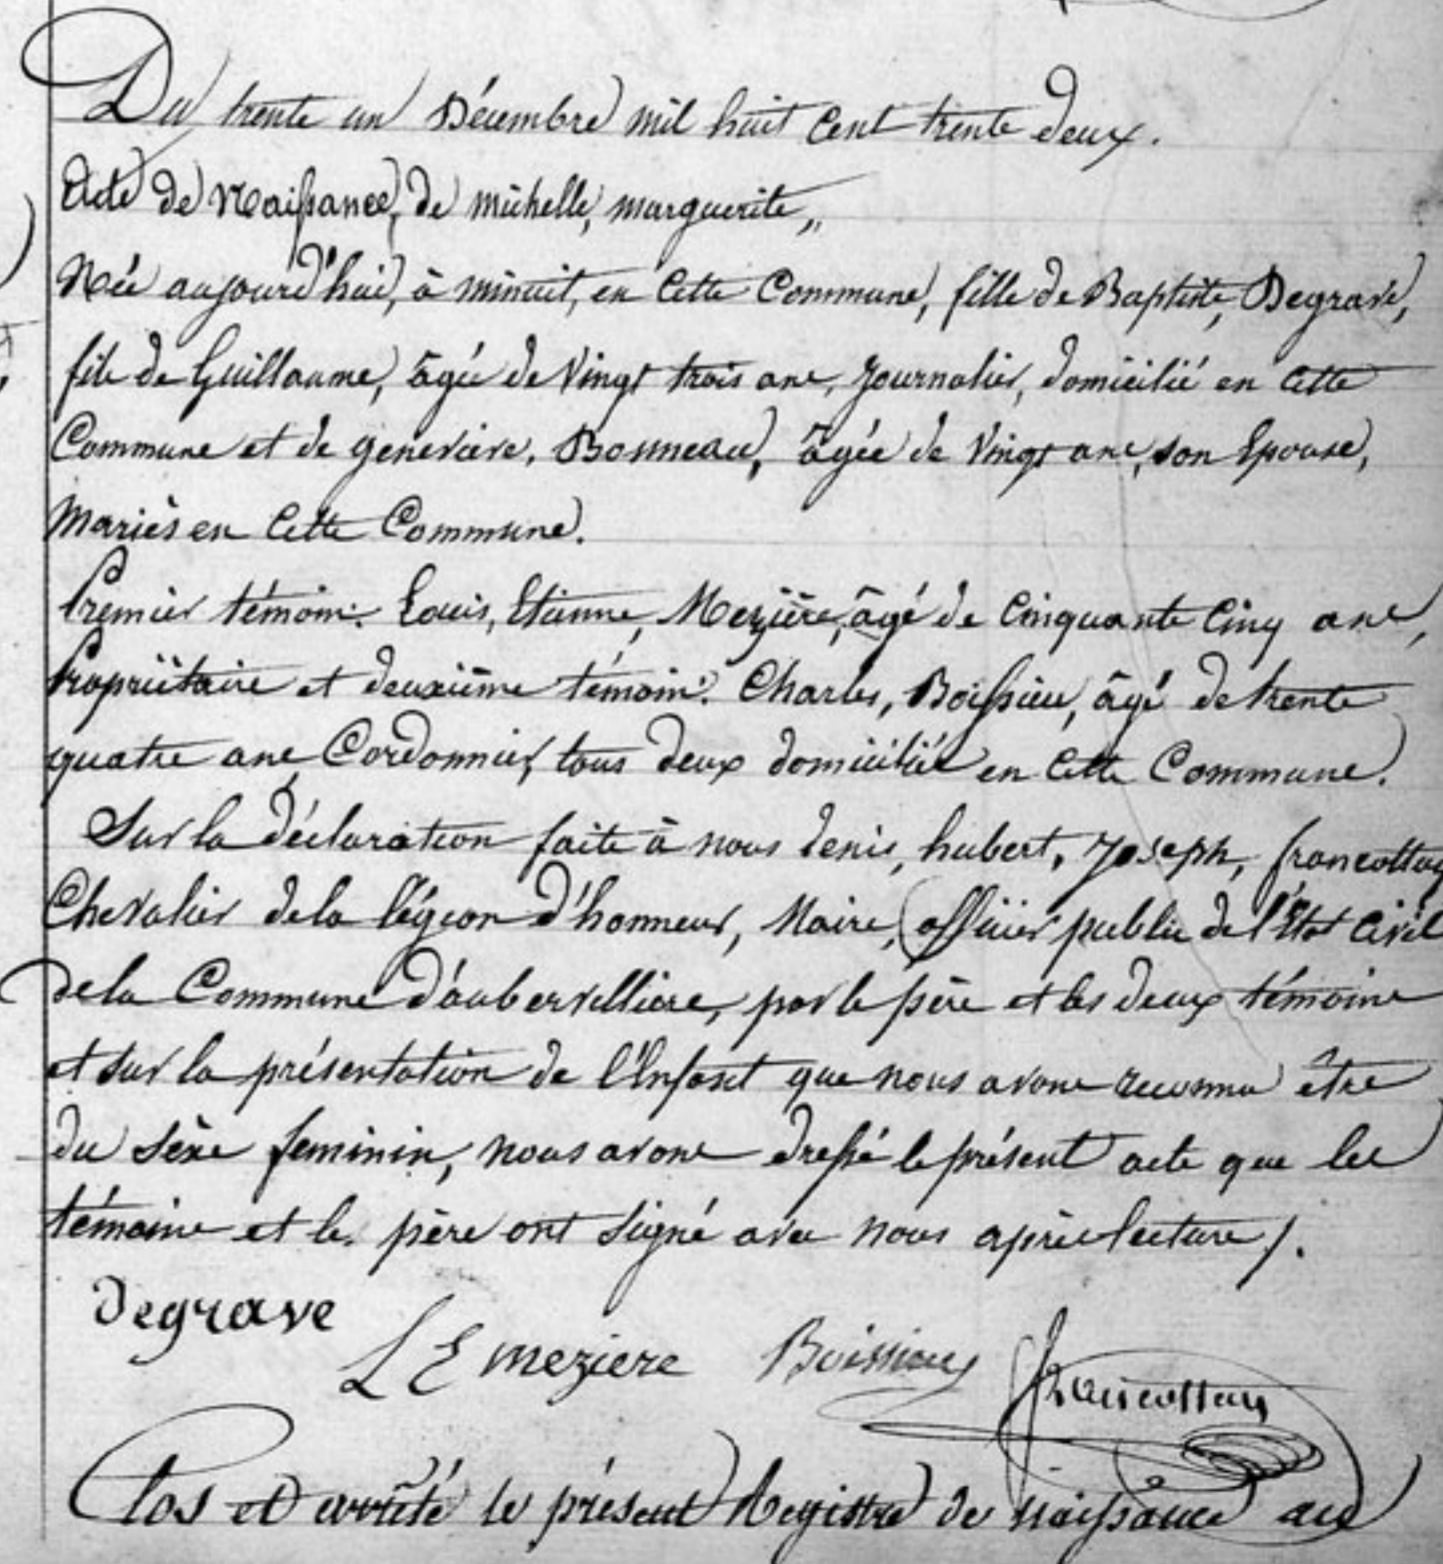 Du trente un Décembre mil huit Cent trente deux.
Acte de Naissance, de michelle, marguerite,,
Née aujourd'hui, à minuit, en Cette Commune, fille de Baptiste, Degrave,
fils de Guillaume, âgée de Vingt trois ans, Journalier, domicilié en Cette
Commune et de genevieve, Bonneau, âgée de Vingt ans, son Epouse,
Mariés en Cette Commune.
Premier témoin: Louis, Etienne, Mezière, âgé de Cinquante Cinq ans,
Propriétaire et deuxième témoin: Charles, Boissieu, âgé de trente
quatre ans Cordonnier, tous deux domiciliés en Cette Commune.
Sur la déclaration faite à nous denis, hubert, Joseph, francottay
Chevalier de la légion d'honneur, Maire, officier public de l'Etat Civil
de la Commune d'aubervilliers, par le père et les deux témoins
et sur la présentation de l'Enfant que nous avons reconnu être
du sèxe feminin, nous avons dressé le présent acte que les
témoins et le père ont signé avec nous après lecture /.
Degrave
L E meziere Boissieu
Francottay
Clos et arrêté le présent Registre de naissance au